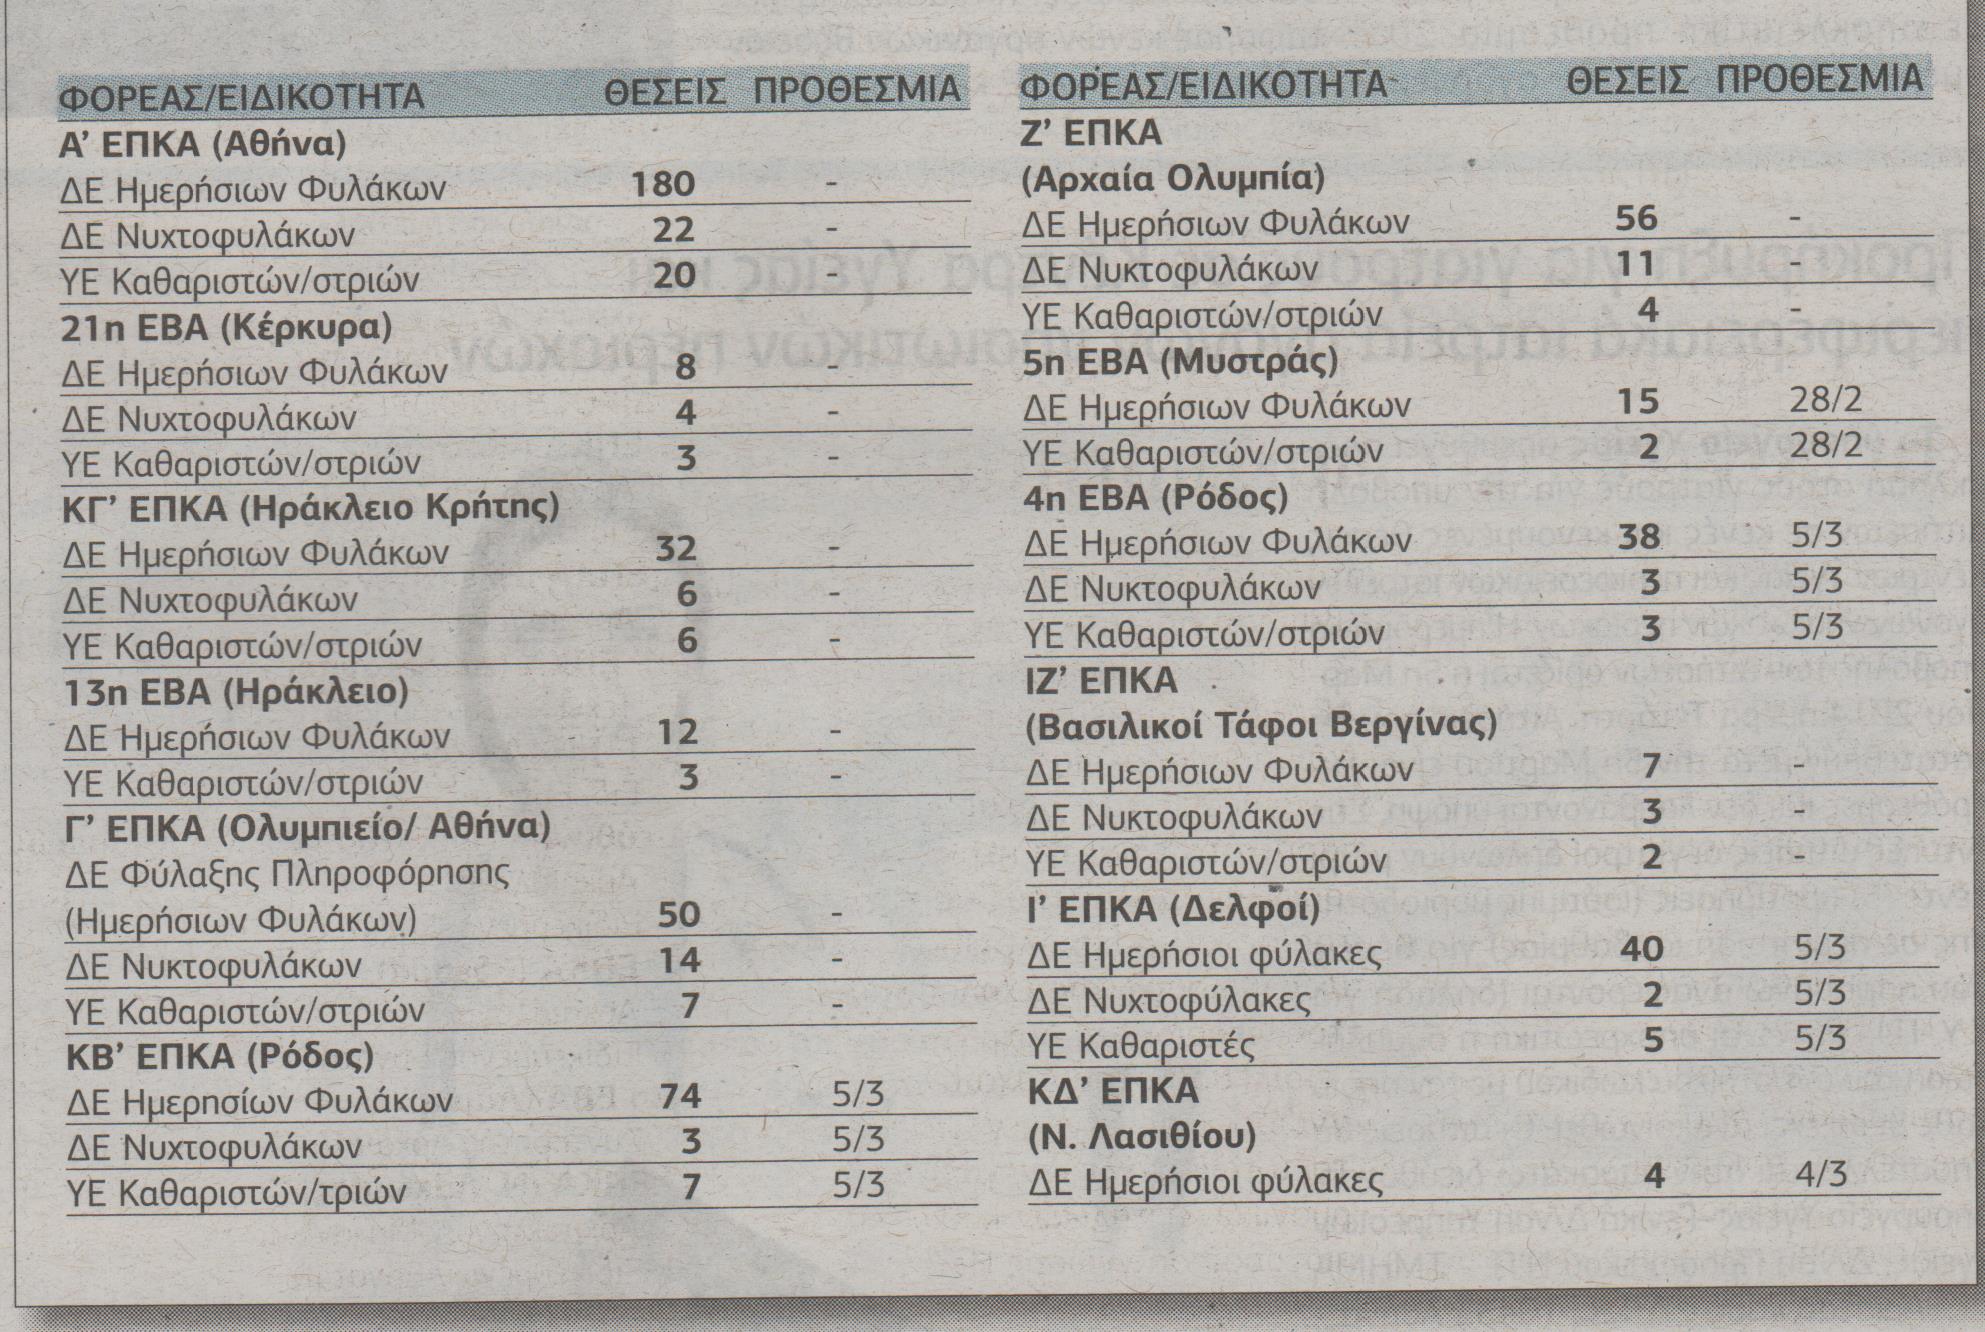 ΦΟΡΕΑΣ/ΕΙΔΙΚΟΤΗΤΑ ΘΕΣΕΙΣ ΠΡΟΘΕΣΜΙΑ
Α’ ΕΠΚΑ (Αθήνα)
ΔΕ Ημερήσιων Φυλάκων 180 -
ΔΕ Νυχτοφυλάκων 22 -
ΥΕ Καθαριστών/στριών 20 -
21η ΕΒΑ (Κέρκυρα)
ΔΕ Ημερήσιων Φυλάκων 8 -
ΔΕ Νυχτοφυλάκων 4 -
ΥΕ Καθαριστών/στριών 3 -
ΚΓ’ ΕΠΚΑ (Ηράκλειο Κρήτης)
ΔΕ Ημερήσιων Φυλάκων 32 -
ΔΕ Νυχτοφυλάκων 6 -
ΥΕ Καθαριστών/στριών 6 -
13η ΕΒΑ (Ηράκλειο)
ΔΕ Ημερήσιων Φυλάκων 12 -
ΥΕ Καθαριστών/στριών 3 -
Γ’ ΕΠΚΑ (Ολυμπιείο/ Αθήνα)
ΔΕ Φύλαξης Πληροφόρησης
(Ημερήσιων Φυλάκων) 50 -
ΔΕ Νυκτοφυλάκων 14 -
ΥΕ Καθαριστών/στριών 7 -
ΚΒ’ ΕΠΚΑ (Ρόδος)
ΔΕ Ημερησίων Φυλάκων 74 5/3
ΔΕ Νυχτοφυλάκων 3 5/3
ΥΕ Καθαριστών/τριών 7 5/3
ΦΟΡΕΑΣ/ΕΙΔΙΚΟΤΗΤΑ ΘΕΣΕΙΣ ΠΡΟΘΕΣΜΙΑ
Ζ’ ΕΠΚΑ
(Αρχαία Ολυμπία)
ΔΕ Ημερήσιων Φυλάκων 56 -
ΔΕ Νυκτοφυλάκων 11 -
ΥΕ Καθαριστών/στριών 4 -
5η ΕΒΑ (Μυστράς)
ΔΕ Ημερήσιων Φυλάκων 15 28/2
ΥΕ Καθαριστών/στριών 2 28/2
4η ΕΒΑ (Ρόδος)
ΔΕ Ημερήσιων Φυλάκων 38 5/3
ΔΕ Νυκτοφυλάκων 3 5/3
ΥΕ Καθαριστών/στριών 3 5/3
ΙΖ’ ΕΠΚΑ
(Βασιλικοί Τάφοι Βεργίνας)
ΔΕ Ημερήσιων Φυλάκων 7 -
ΔΕ Νυκτοφυλάκων 3 -
ΥΕ Καθαριστών/στριών 2 -
Ι’ ΕΠΚΑ (Δελφοί)
ΔΕ Ημερήσιοι φύλακες 40 5/3
ΔΕ Νυχτοφύλακες 2 5/3
ΥΕ Καθαριστές 5 5/3
ΚΔ’ ΕΠΚΑ
(Ν. Λασιθίου)
ΔΕ Ημερήσιοι φύλακες 4 4/3